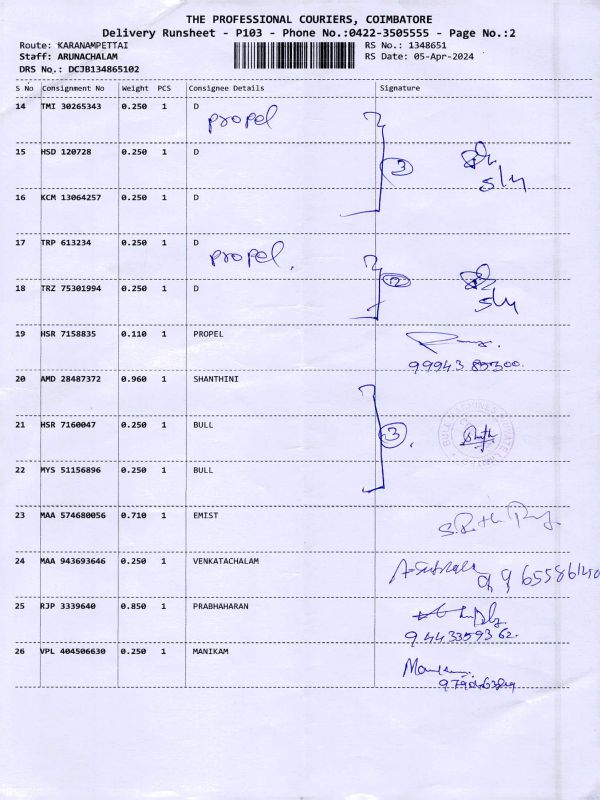 THE PROFESSIONAL COURIERS, COIMBATORE
Delivery Runsheet - P103 - Phone No.:0422-3505555 - Page No.:2
Route: KARANAMPETTAI RS No.: 1348651
Staff: ARUNACHALAM RS Date: 05-Apr-2024
DRS No.: DCJB134865102
S No Consignment No Weight PCS Consignee Details Signature
14 TMI 30265343 0.250 1 D
propel
15 HSD 120728 0.250 1 D 3
16 KCM 13064257 0.250 1 D
17 TRP 613234 0.250 1 D
propel.
18 TRZ 75301994 0.250 1 D 2
19 HSR 7158835 0.110 1 PROPEL
20 AMD 28487372 0.960 1 SHANTHINI
21 HSR 7160047 0.250 1 BULL 3
22 MYS 51156896 0.250 1 BULL
23 MAA 574680056 0.710 1 EMIST
24 MAA 943693646 0.250 1 VENKATACHALAM
25 RJP 3339640 0.850 1 PRABHAHARAN
9443359362.
26 VPL 404506630 0.250 1 MANIKAM